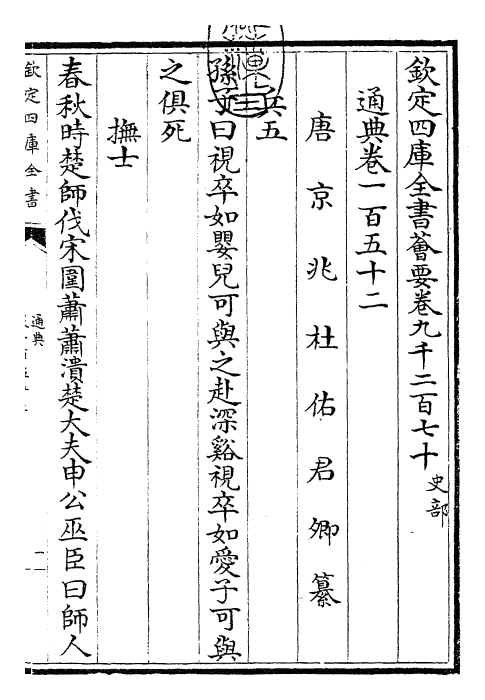 欽定四庫全書薈要卷九千二百七十 史部
通典卷一百五十二
唐京兆杜佑君卿纂
兵五
孫子曰視卒如嬰兒可與之赴深谿視卒如愛子可與
之俱死
撫士
春秋時楚師伐宋圍蕭蕭潰楚大夫申公巫臣曰師人
欽定四庫全書
通典